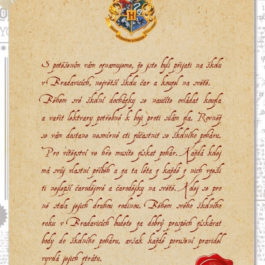 S potěšením vám oznamujeme, že jste byli přijati na školu
v Bradavicích, největší školu čar a kouzel na světě.
Během své školní docházky se naučíte ovládat kouzla
a vařit lektvary potřebné k boji proti silám zla. Rovněž
se vám dostane nesmírné cti účastnit se školního poháru.
Pro vítězství ve hře musíte získat pohár. Každá kolej
má svůj vlastní příběh a za ta léta z každé z nich vyšli
ti nejlepší čarodějové a čarodějky na světě. A teď se pro
vás stala jejich druhou rodinou. Během svého školního
roku v Bradavicích budete za dobrý prospěch získávat
body do školního poháru, avšak každé porušení pravidel
vyvolá jejich ztrátu.